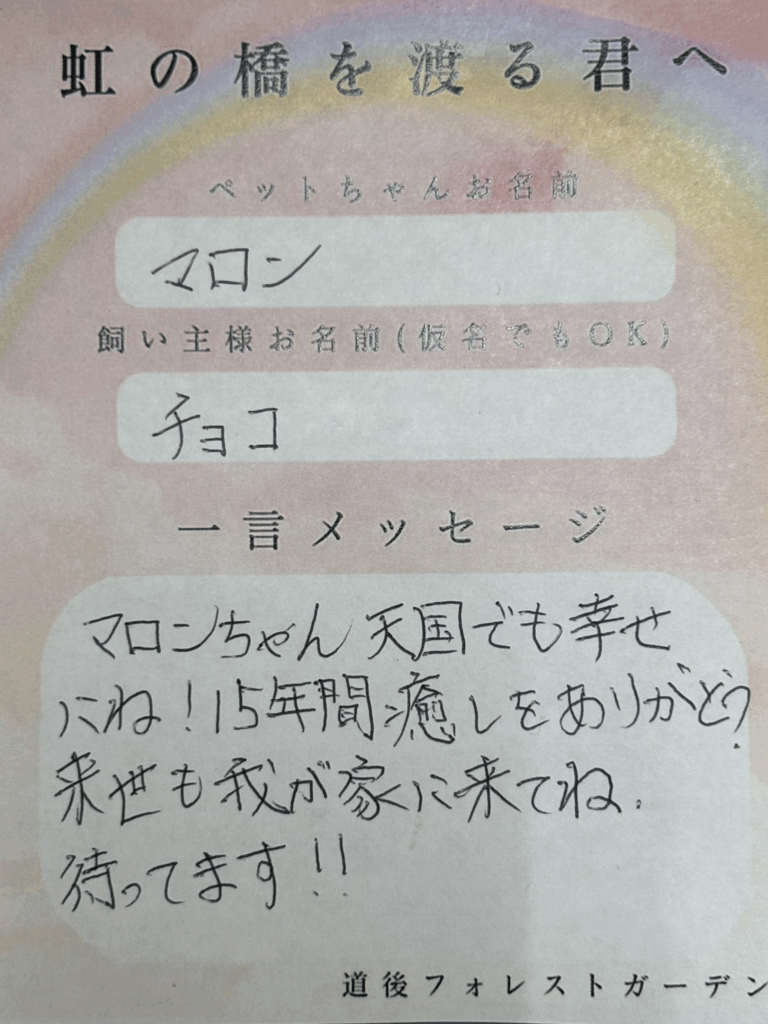 虹の橋を渡る君へ
ペットちゃんお名前
マロン
飼い主様お名前(仮名でもOK)
チョコ
一言メッセージ
マロンちゃん天国でも幸せ
にね！15年間癒しをありがどう
来世も我が家に来てね.
待ってます!!
道後フォレストガーデン